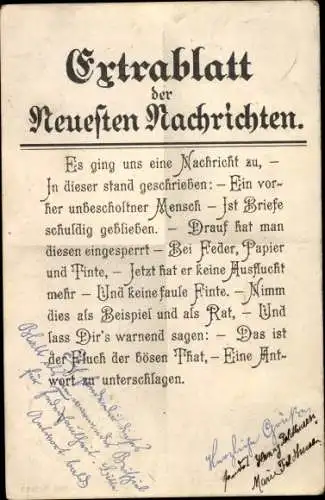 Extrablatt
der
Neuesten Nachrichten.
Es ging uns eine Nachricht zu, –
In dieser stand geschrieben: – Ein vor-
her unbescholtner Mensch – Ist Briefe
schuldig geblieben. – Drauf hat man
diesen eingesperrt – Bei Feder, Papier
und Tinte, – Jetzt hat er keine Ausflucht
mehr – Und keine faule Finte. – Nimm
dies als Beispiel und als Rat, – Und
lass Dir's warnend sagen: – Das ist
der Fluch der bösen That, – Eine Ant-
wort zu unterschlagen.
Blatt
für
Antwort bald
Herzliche Grüße